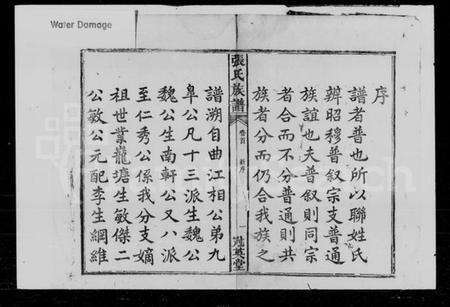 Water Damage
序
譜者普也所以聯姓氏
辨昭穆普叙宗支普通
族誼也夫普叙則同宗
者合而不分普通則共
族者分而仍合我族之
張氏族譜
卷首
新序
一
冠英堂
譜溯自曲江相公弟九
皐公凡十三派生魏公
魏公生南軒公又八派
至仁秀公係我分支嫡
祖世業龍塘生敏傑二
公敏公元配李生綱維